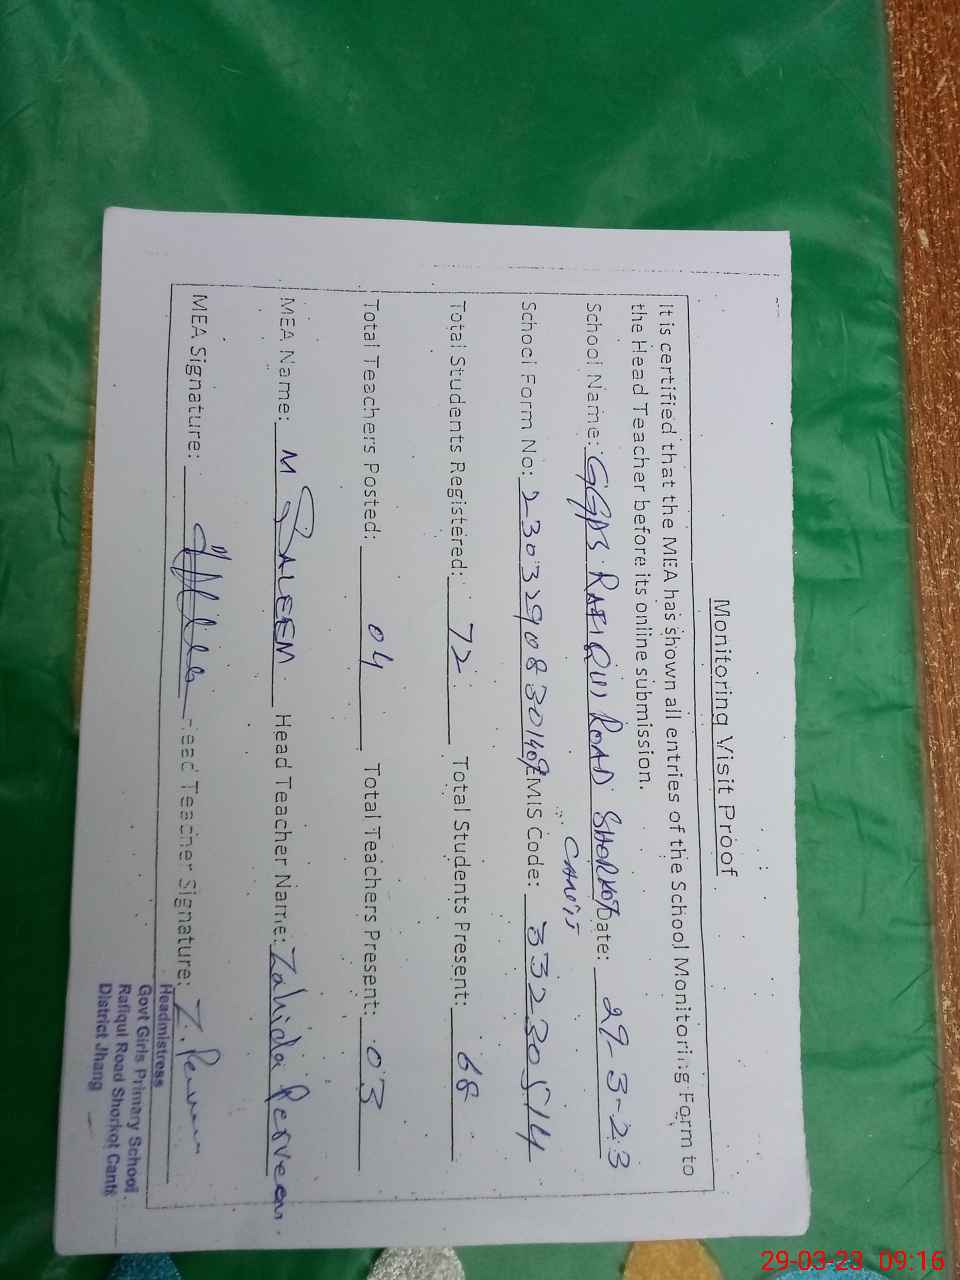 Monitoring Visit Proof
It is certified that the MEA has shown all entries of the School Monitoring Form to
the Head Teacher before its online submission.
School Name: GGPS RAFIQUI ROAD SHORKOT CANTT Date: 29-3-23
School Form No: EMIS Code: 33230514
Total Students Registered: 72 Total Students Present: 68
Total Teachers Posted: 04 Total Teachers Present: 03
MEA Name: M SALEEM Head Teacher Name: Zahida Perveen
MEA Signature: Head Teacher Signature: Z. Perveen
Headmistress
Govt Girls Primary School
Rafiqui Road Shorkot Cantt
District Jhang
29-03-23 09:16